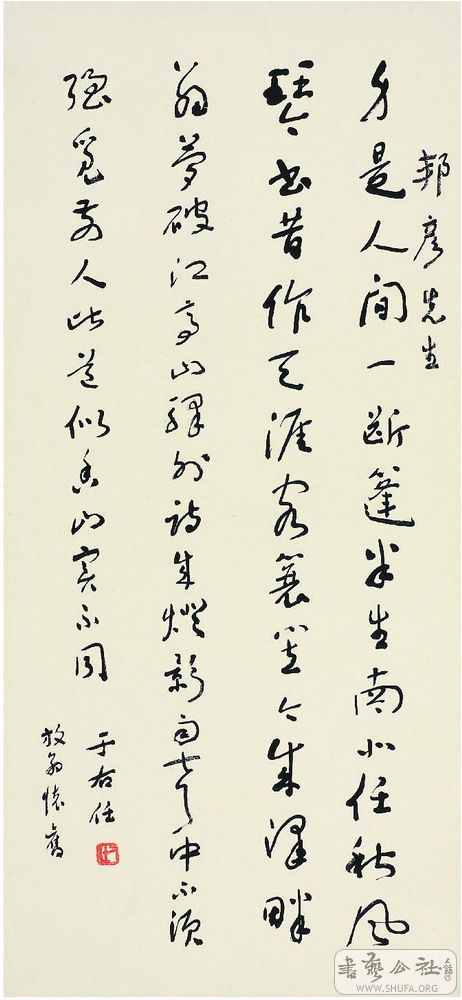 邦彦先生
身是人間一斷篷半生南北任秋風
琴書昔作天涯客蓑笠今成澤畔
翁夢破江亭山驛外詩成燈影雨聲中不須
強覓前人比道似香山實不同
于右任
放翁懷舊
書藝公社
WWW.SHUFA.ORG